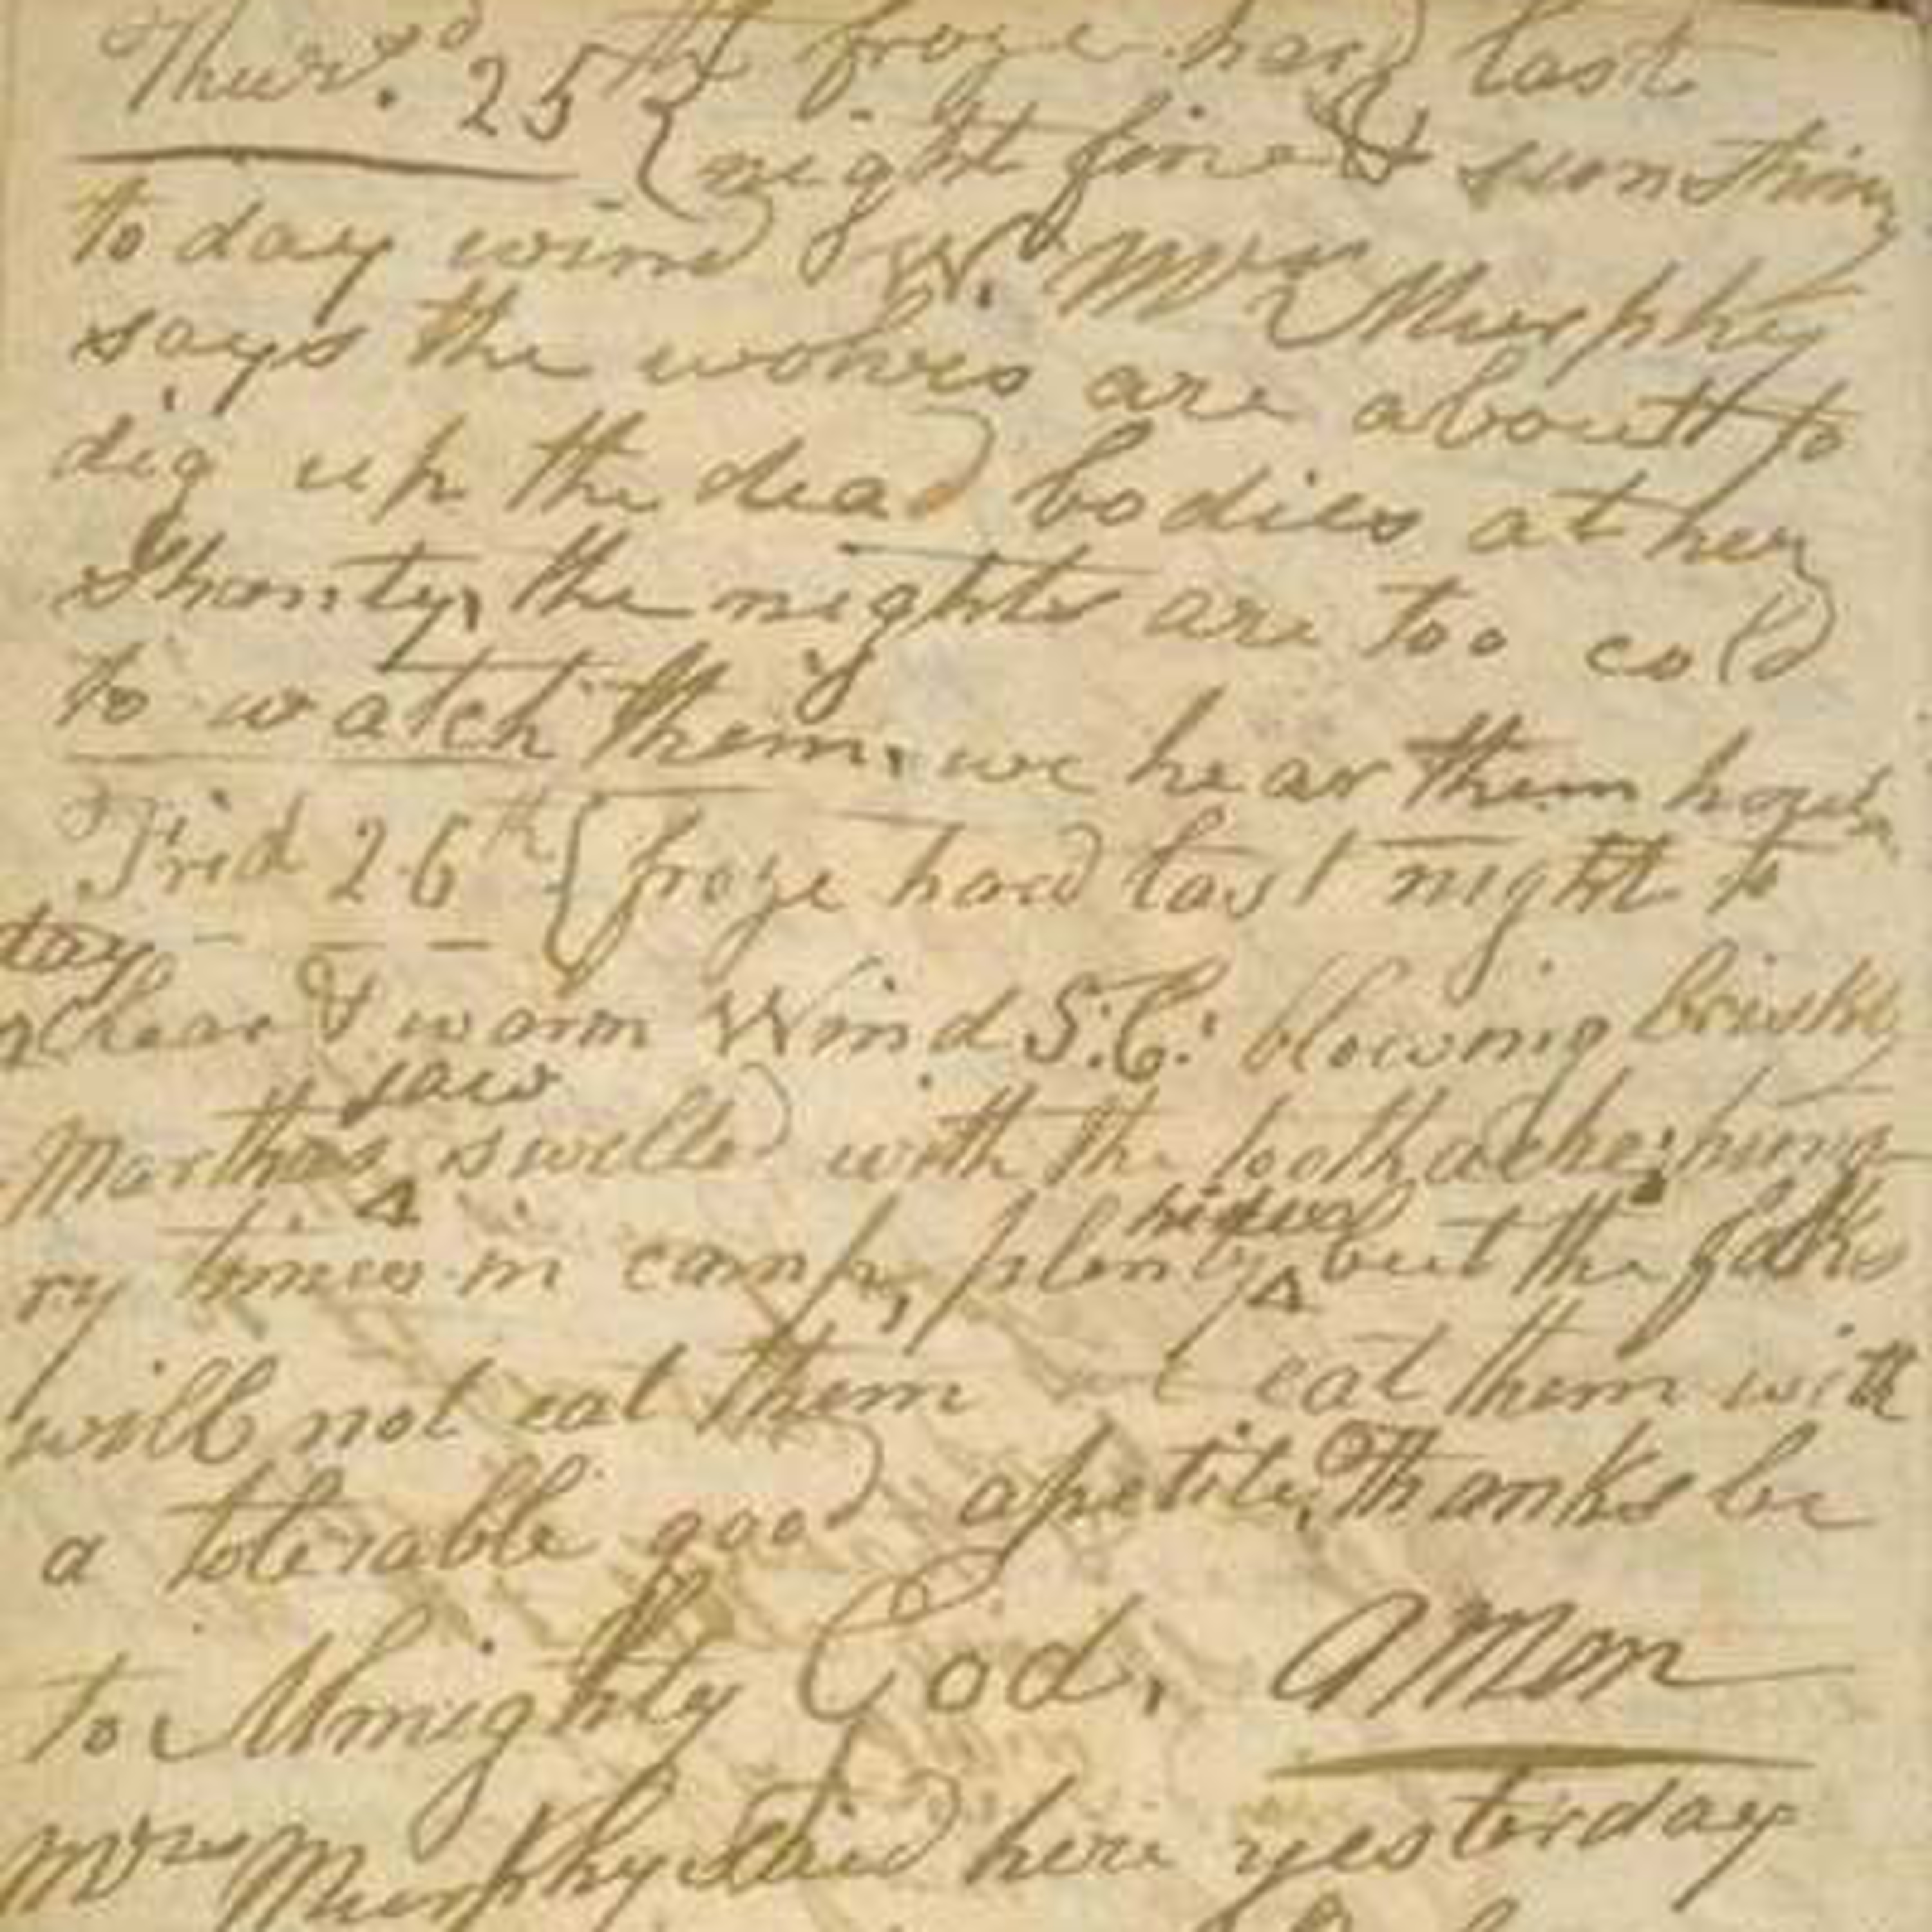 Thursd. 25th froze hard last
night fine & sunshiny
to day wind W. Mrs Murphy
says the wolves are about to
dig up the dead bodies at her
shanty, the nights are too cold
to watch them, we hear them howl
Frid 26th froze hard last night to
day
clear & warm Wind S.E: blowing briskly
jaw
Marthas swelled with the toothache: hung
hides
ry times in camp, plenty but the folks
will not eat them we eat them with
a tolerable good apetite, Thanks be
to Almighty God. Amen
Mrs Murphy said here yesterday